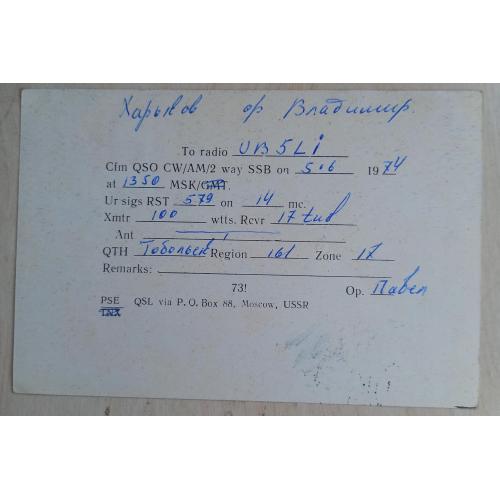 Харьков ор Владимир.
To radio UB5LI
Cfm QSO CW/AM/2 way SSB on 5.6 1974
at 1350 MSK/GMT.
Ur sigs RST 579 on 14 mc.
Xmtr 100 wtts. Rcvr 17 tud
Ant
QTH Тобольск Region 161 Zone 17
Remarks:
73! Op. Павел
PSE QSL via P. O. Box 88, Moscow, USSR
TNX